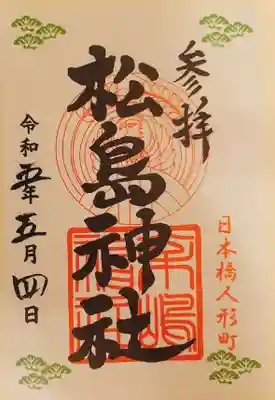 参拝
日本橋人形町
松島神社
令和五年五月四日